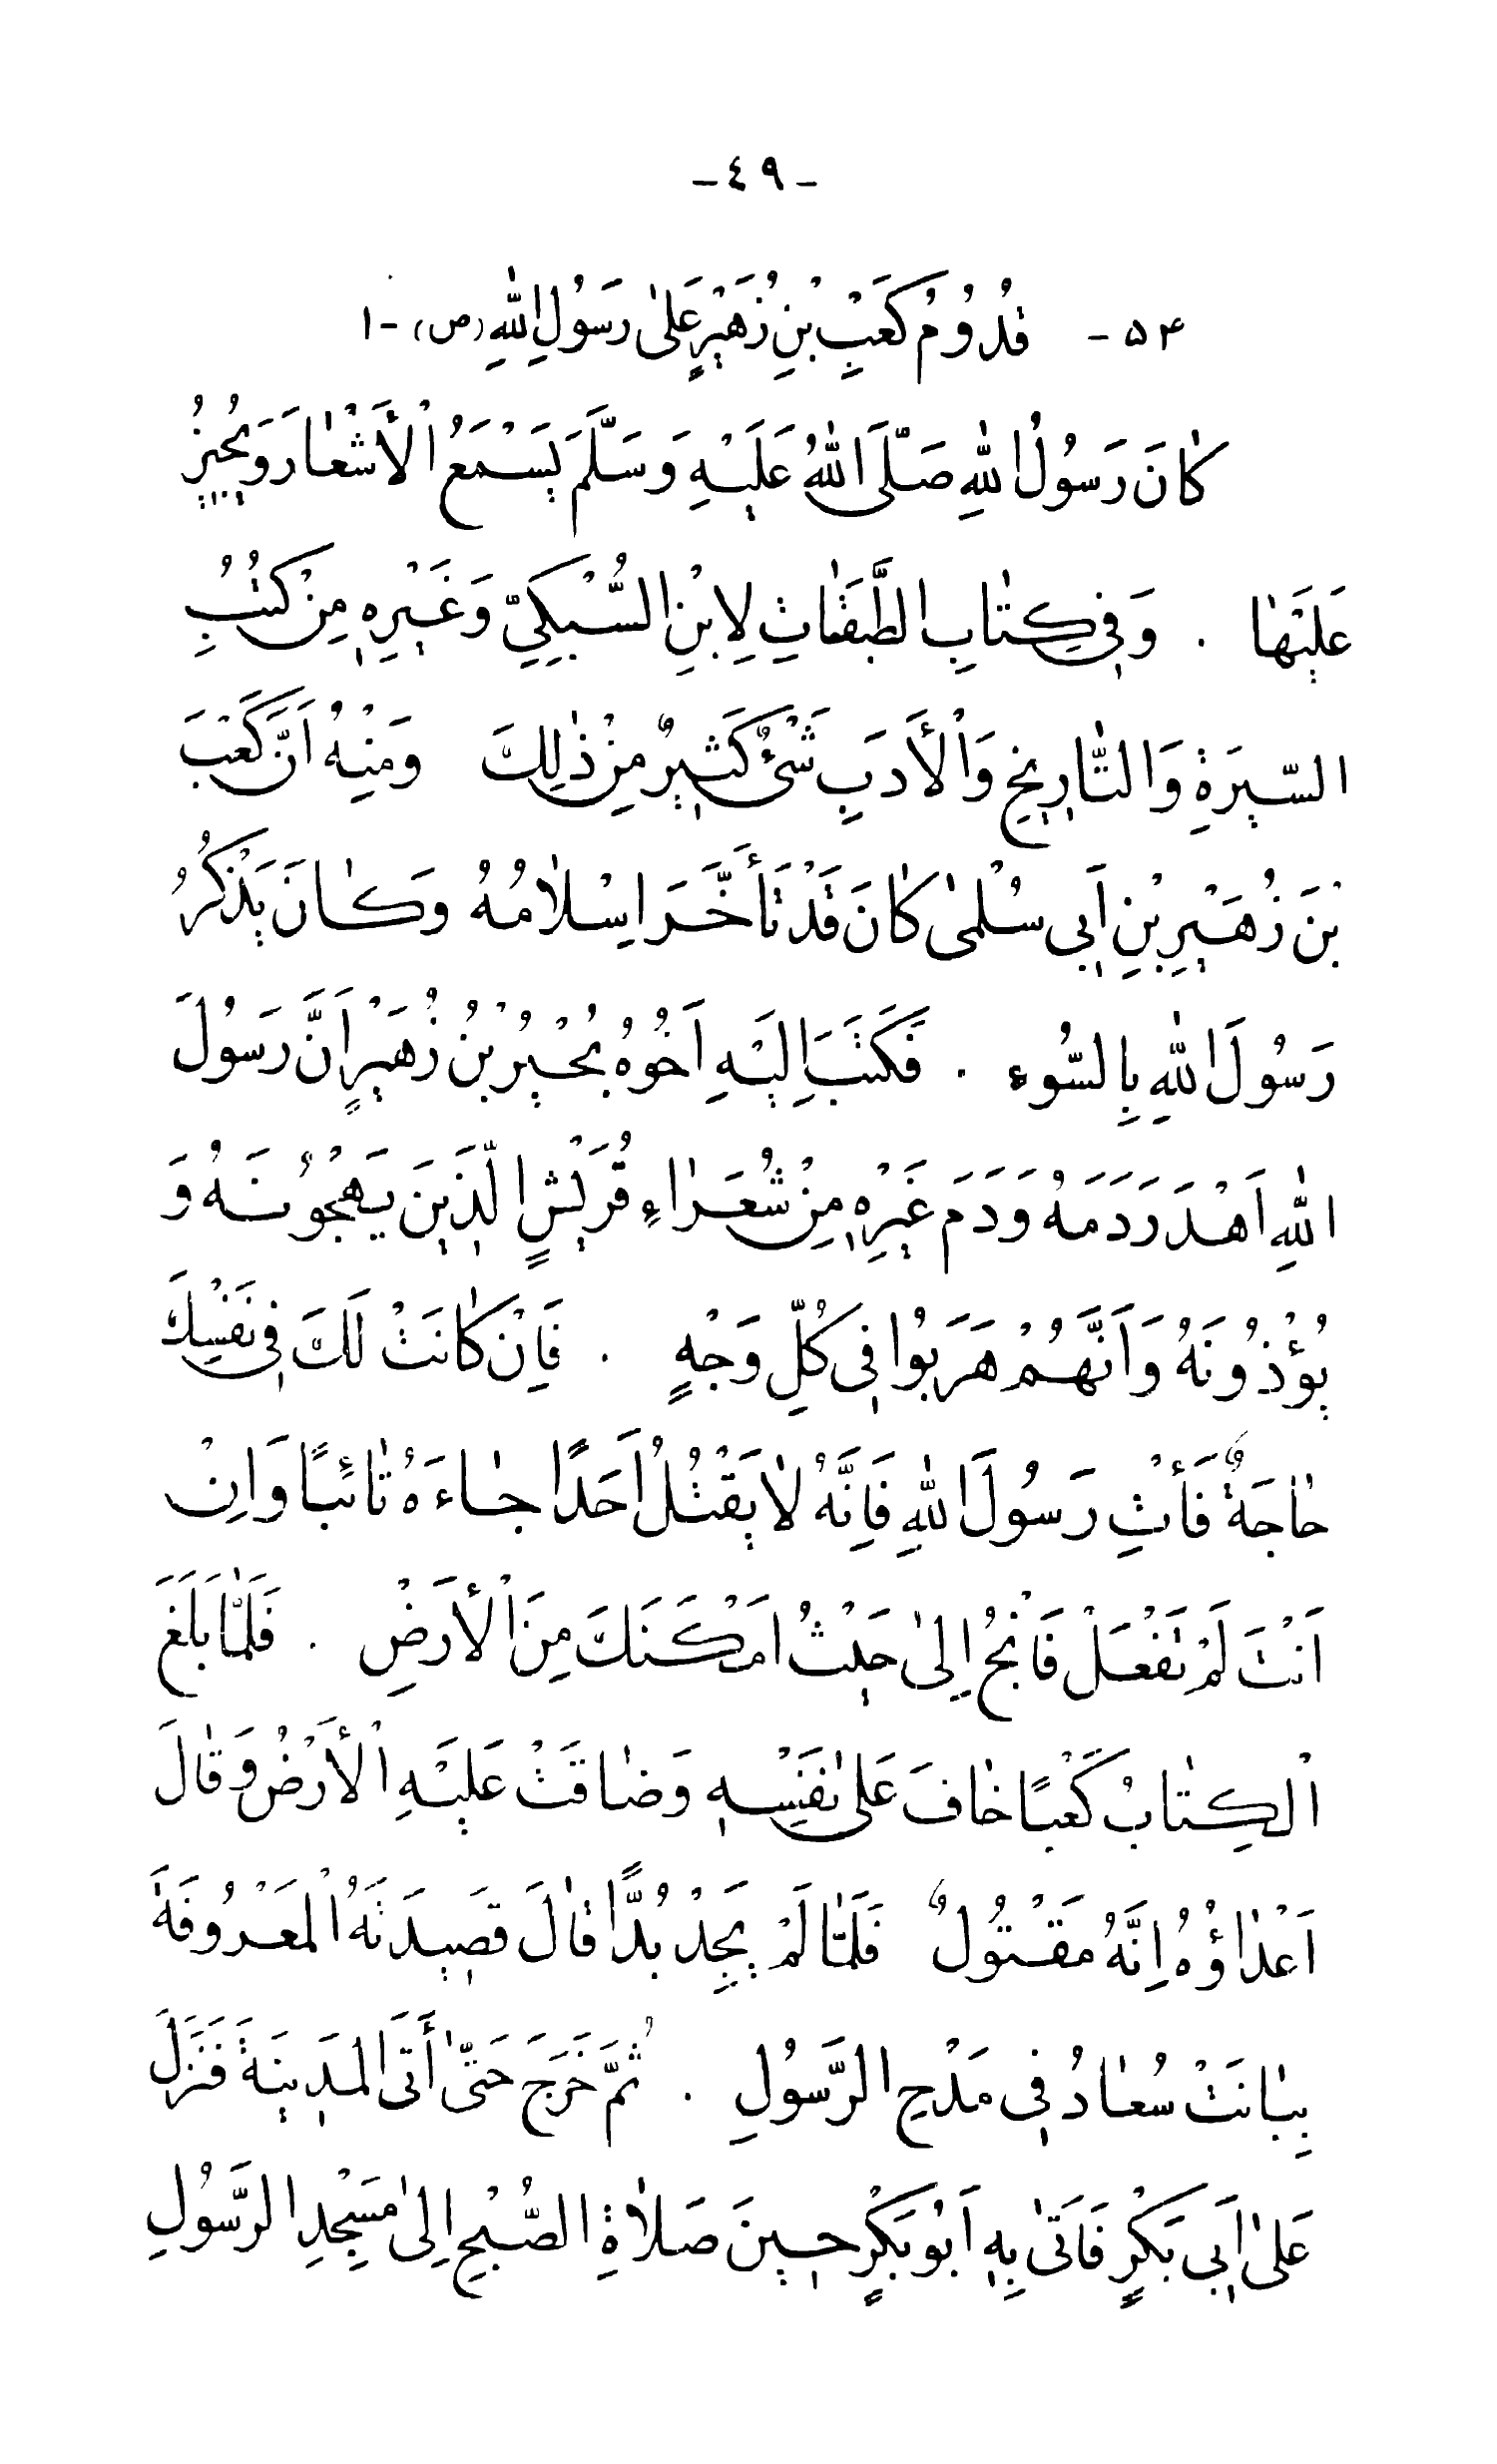 -٤٩-
۵۴- قُدُومُ كَعْبِ بْنِ زُهَيْرٍ عَلىٰ رَسُولِ اللّٰهِ (ص) -١
كٰانَ رَسُولُ اللّٰهِ صَلَّى اللّٰهُ عَلَيْهِ وَسَلَّمَ يَسْمَعُ الْأَشْعٰارَ وَيُجيزُ
عَلَيْهٰا . وَفي كِتٰابِ الطَّبَقٰاتِ لِابْنِ السُّبْكِيِّ وَغَيْرِهِ مِنْ كُتُبِ
السّيرَةِ وَالتّٰاريخِ وَالْأَدَبِ شَىْءٌ كَثيرٌ مِنْ ذٰلِكَ وَمِنْهُ اَنَّ كَعْبَ
بْنَ زُهَيْرِ بْنِ اَبي سُلْمىٰ كٰانَ قَدْ تَأَخَّرَ اِسْلاٰمُهُ وَكٰانَ يَذْكُرُ
رَسُولَ اللّٰهِ بِالسُّوءِ . فَكَتَبَ اِلَيْهِ اَخُوهُ بُجَيْرُ بْنُ زُهَيْرٍ اَنَّ رَسُولَ
اللّٰهِ اَهْدَرَ دَمَهُ وَدَمَ غَيْرِهِ مِنْ شُعَرٰاءِ قُرَيْشٍ الَّذينَ يَهْجُونَهُ وَ
يُؤْذُونَهُ وَاَنَّهُمْ هَرَبُوا في كُلِّ وَجْهٍ . فَاِنْ كٰانَتْ لَكَ في نَفْسِكَ
حٰاجَةٌ فَأْتِ رَسُولَ اللّٰهِ فَاِنَّهُ لاٰ يَقْتُلُ اَحَدًا جٰاءَهُ تٰائِبًا وَاِنْ
اَنْتَ لَمْ تَفْعَلْ فَانْجُ اِلىٰ حَيْثُ اَمْكَنَكَ مِنَ الْأَرْضِ . فَلَمّٰا بَلَغَ
الْكِتٰابُ كَعْبًا خٰافَ عَلىٰ نَفْسِهِ وَضٰاقَتْ عَلَيْهِ الْأَرْضُ وَقٰالَ
اَعْدٰاؤُهُ اِنَّهُ مَقْتُولٌ فَلَمّٰا لَمْ يَجِدْ بُدًّا قٰالَ قَصيدَتَهُ الْمَعْرُوفَةَ
بِبٰانَتْ سُعٰادُ في مَدْحِ الرَّسُولِ . ثُمَّ خَرَجَ حَتّىٰ أَتَى الْمَدينَةَ فَنَزَلَ
عَلىٰ اَبي بَكْرٍ فَاَتىٰ بِهِ اَبُو بَكْرٍ حينَ صَلاٰةِ الصُّبْحِ اِلىٰ مَسْجِدِ الرَّسُولِ